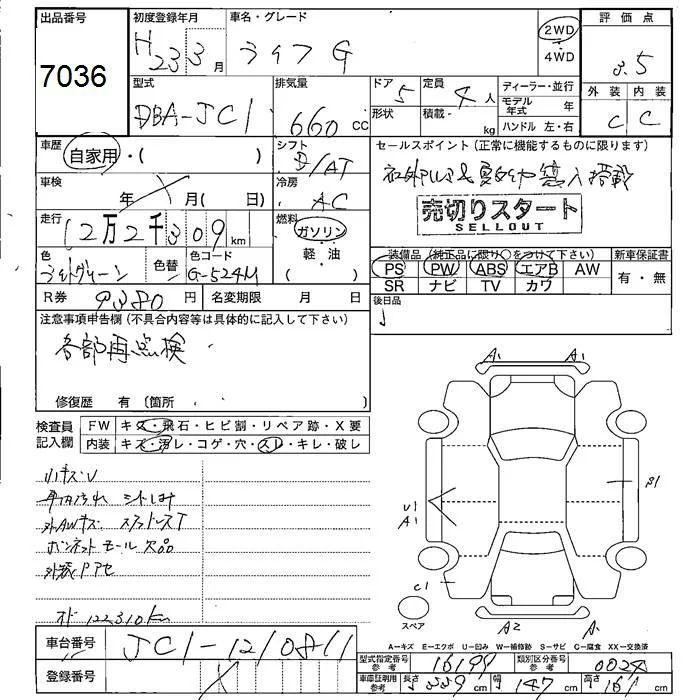 出品番号
7036
初度登録年月
H23 3 月
車名・グレード
ライフ G
2WD
・
4WD
評価点
3.5
外装 内装
C C
型式
DBA-JC1
排気量
660 cc
ドア 5
形状
定員 4 人
積載 kg
ディーラー・並行
モデル年式 年
ハンドル 左・右
車歴
自家用・( )
シフト
/AT
セールスポイント(正常に機能するものに限ります)
社外アルミ&夏タイヤ 搭載
売切りスタート
SELLOUT
車検
年 月( 日)
冷房
AC
走行
12万2千309 km
燃料
ガソリン
軽・油
( )
色
ライトグリーン
色替
色コード
G-524M
装備品(純正品に限り○をつけて下さい)
PS PW ABS エアB AW
SR ナビ TV カワ
新車保証書
有・無
R券 9380 円
名変期限 月 日
後日品
注意事項申告欄(不具合内容等は具体的に記入して下さい)
各部再点検
修復歴 有(箇所 )
検査員
記入欄
FW キズ・飛石・ヒビ割・リペア跡・X要
内装 キズ・汚レ・コゲ・穴・スレ・キレ・破レ
小キズU
車内汚れ シートしみ
外AWキズ スタッドレスT
ボンネットモール欠品
外装
122310km
A1 A1
U1
A1
S1
C1
A2 A
スペア
A=キズ E=エクボ U=凹み W=補修跡 S=サビ C=腐食 XX=交換済
車台番号 JC1-1210811
登録番号
型式指定番号 参考 16199
類別区分番号 参考 0024
車庫証明用 参考 長さ 339 cm 幅 147 cm 高さ 161 cm